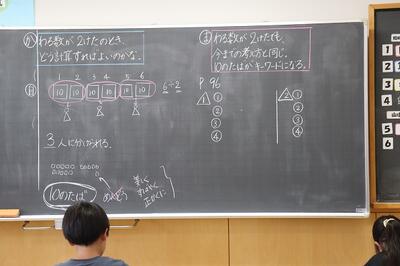 か
わる数が2けたのとき、
どう計算すればよいのかな。
ま
わる数が2けたでも、
今までの考え方と同じ。
10のたばがキーワードになる。
1 2 3 4 5 6
10 10 10 10 10 10
6÷2
3人に分けられる。
10のたば
美しく
すばやく
正かくに
P 96
1 ① ② ③ ④
2 ① ② ③ ④
1
2
3
4
5
6